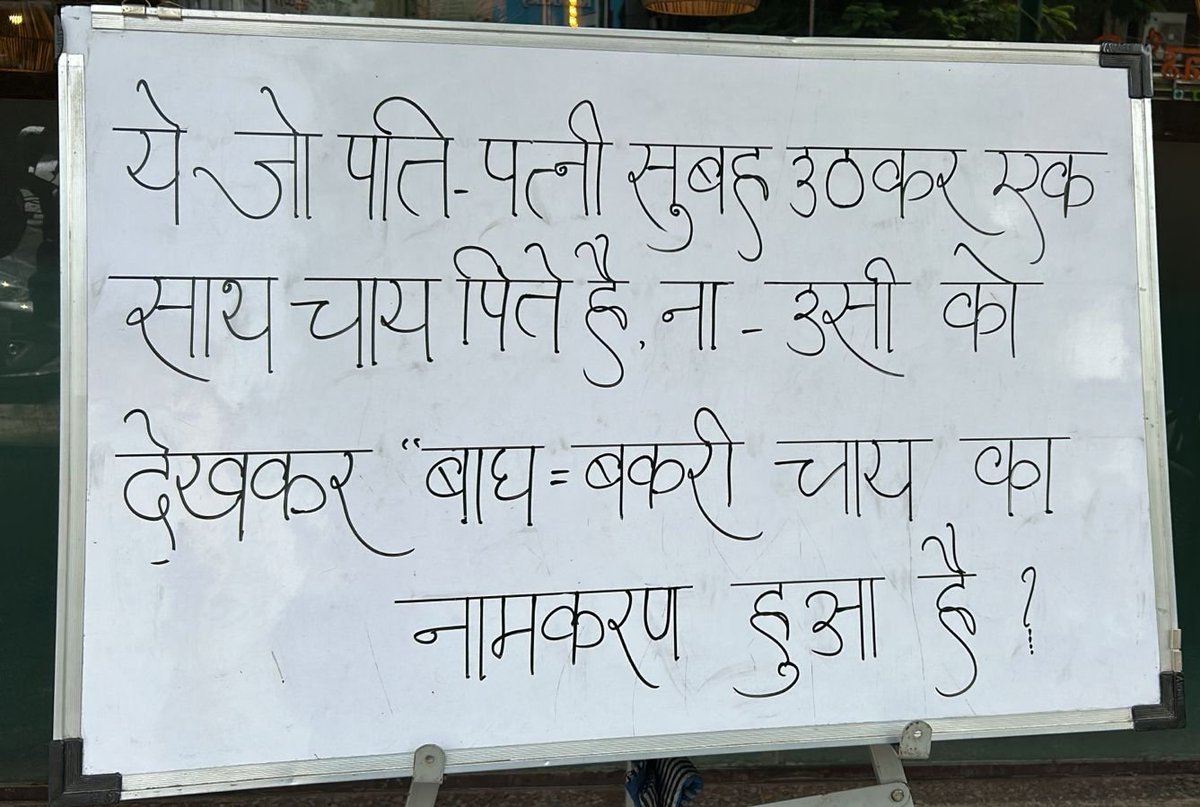 ये जो पति-पत्नी सुबह उठकर एक
साथ चाय पिते है, ना - उसी को
देखकर "बाघ=बकरी चाय का
नामकरण हुआ है ?